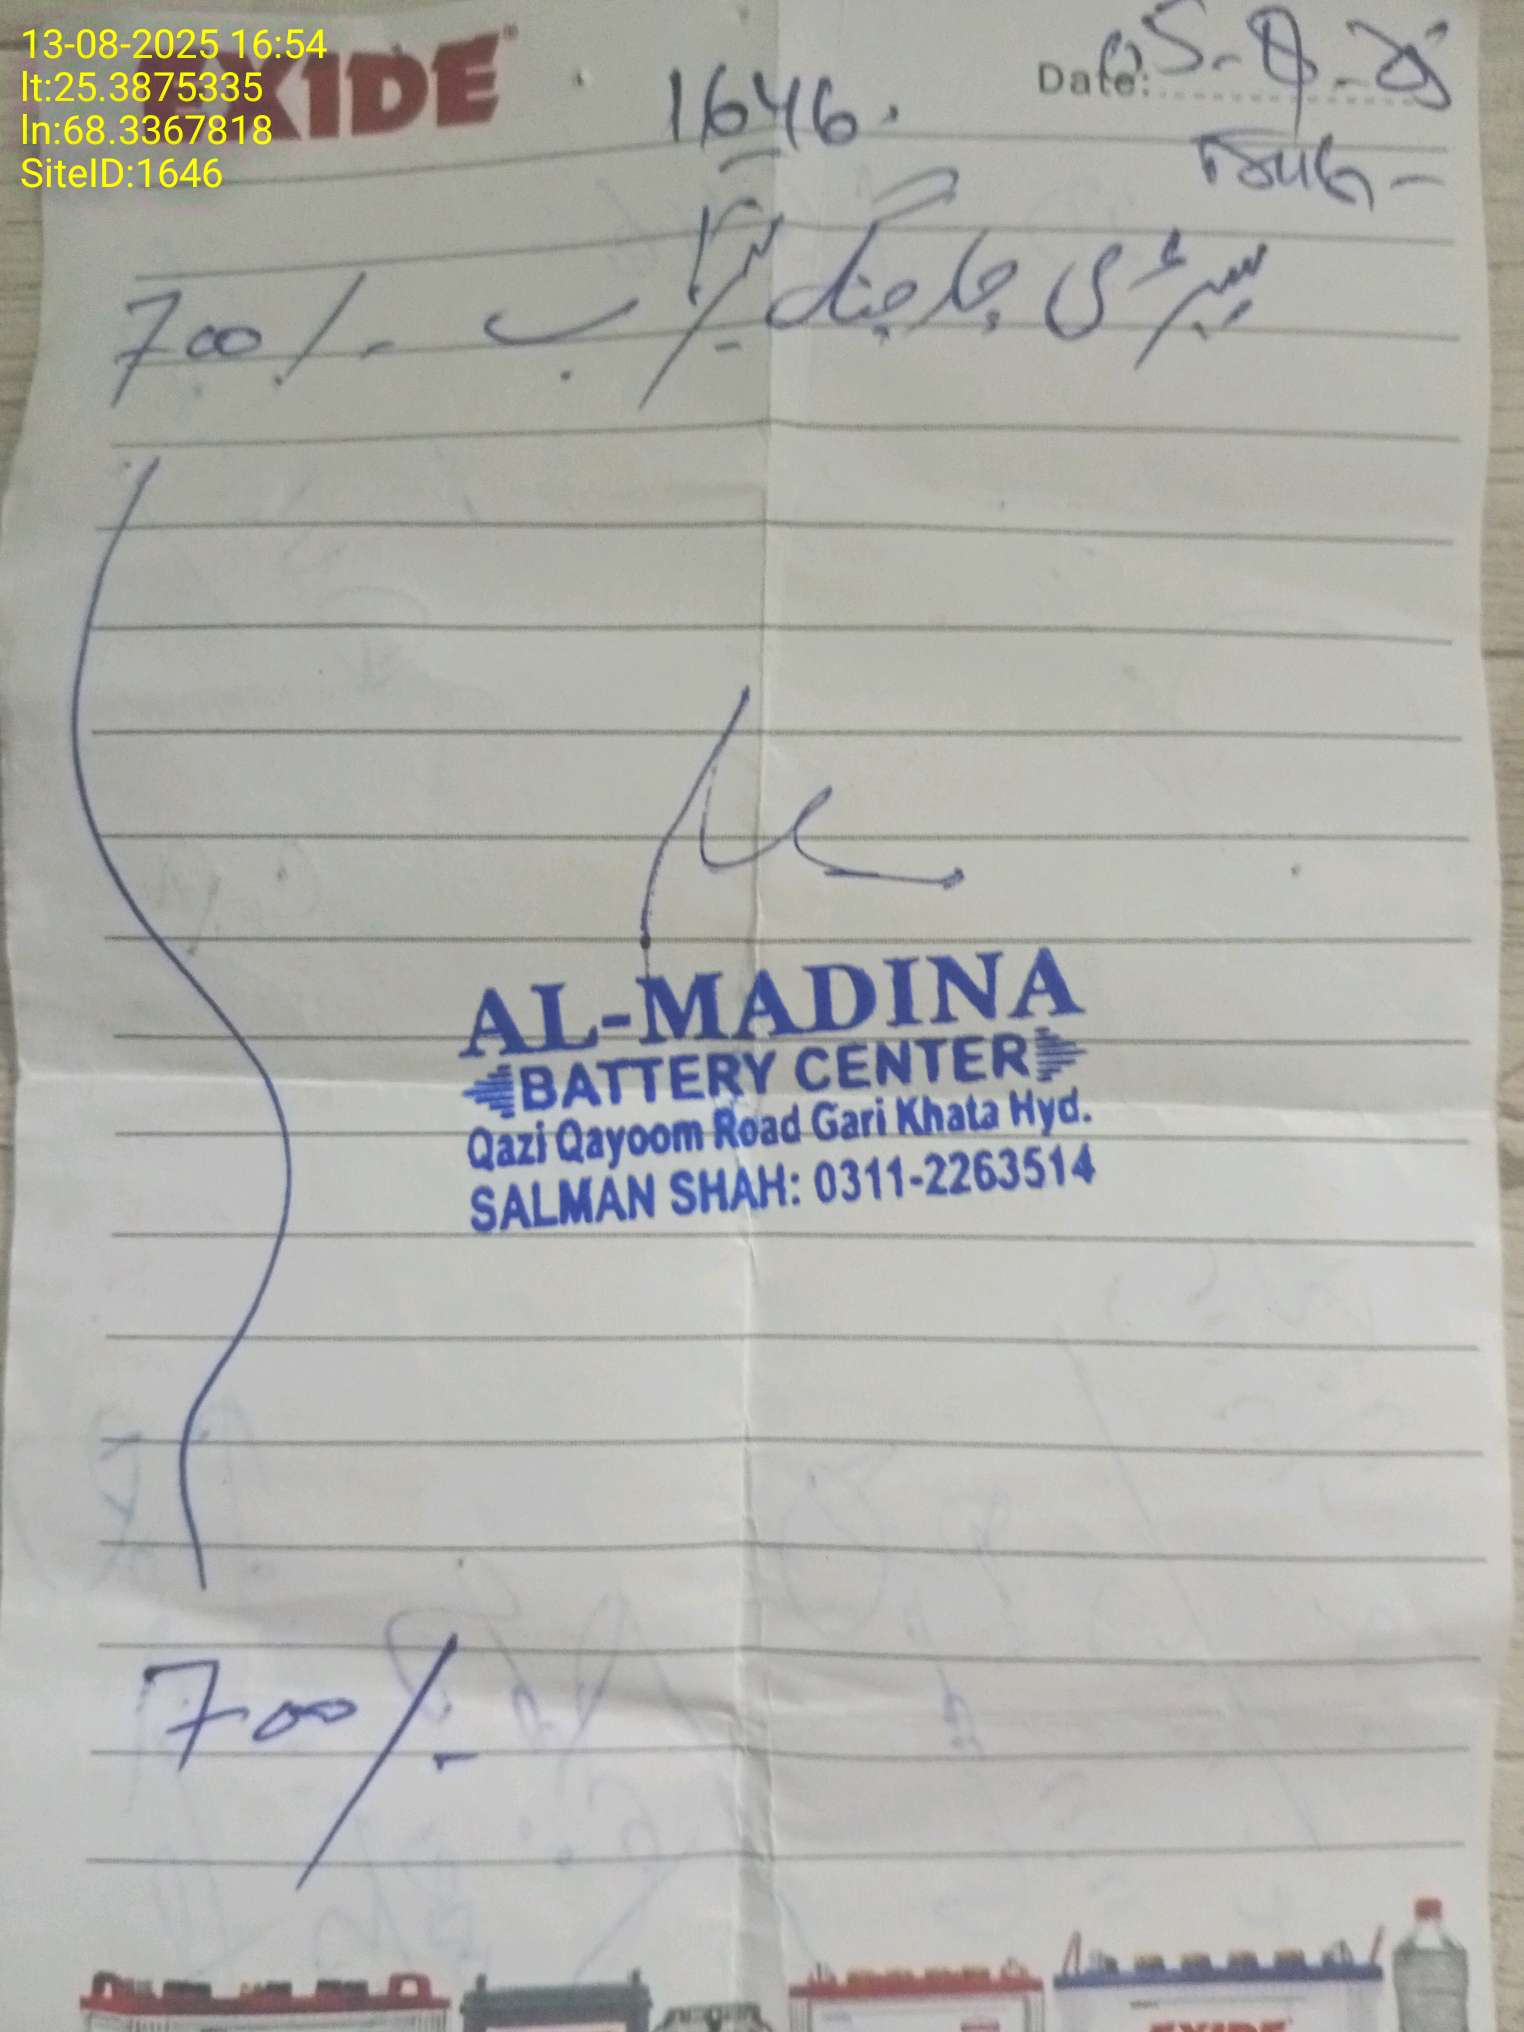 13-08-2025 16:54
lt:25.3875335
ln:68.3367818
SiteID:1646
EXIDE
1646.
Date:
بیٹری چارجنگ
700/-
AL-MADINA
BATTERY CENTER
Qazi Qayoom Road Gari Khata Hyd.
SALMAN SHAH: 0311-2263514
700/-
EXIDE